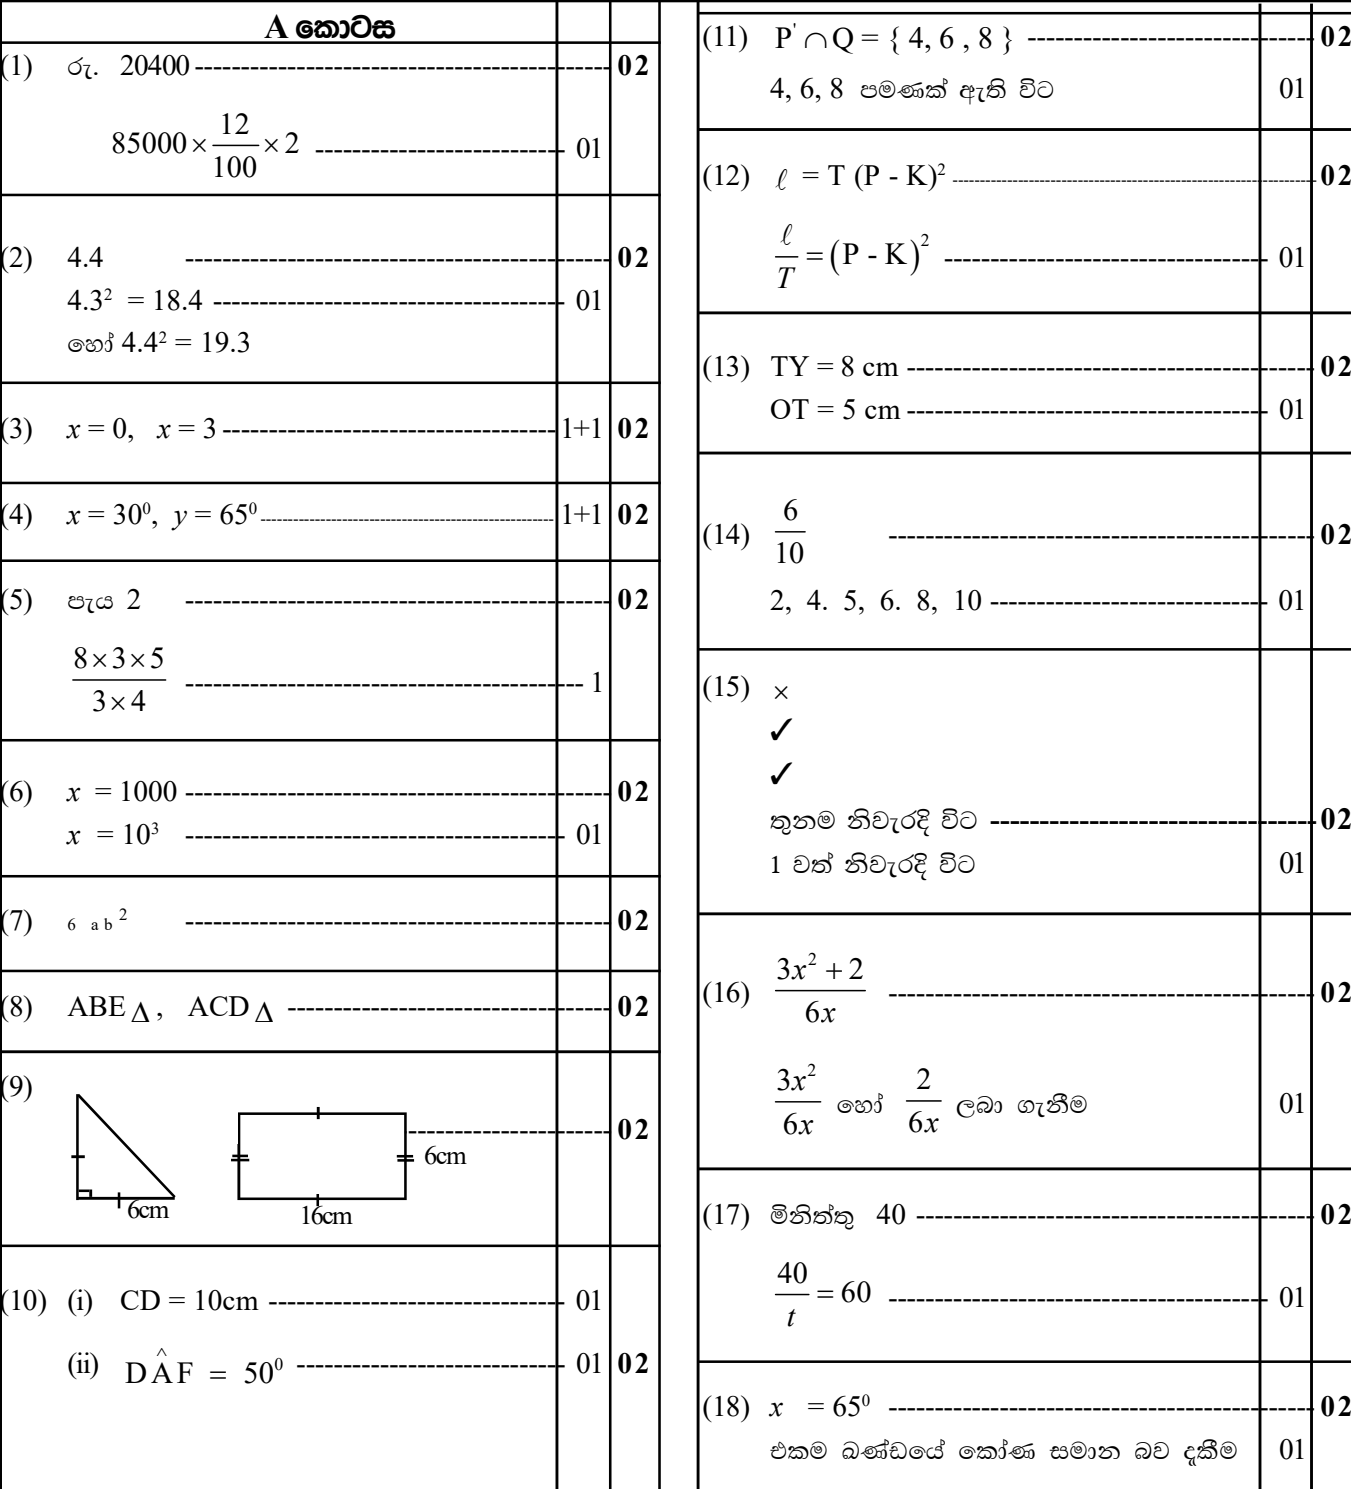 A කොටස
(1) රු. 20400 ---------- 02
85000 × 12/100 × 2 ---------- 01
(2) 4.4 ---------- 02
4.3² = 18.4 ---------- 01
හෝ 4.4² = 19.3
(3) x = 0, x = 3 ---------- 1+1 02
(4) x = 30⁰, y = 65⁰ ---------- 1+1 02
(5) පැය 2 ---------- 02
8 × 3 × 5 / 3 × 4 ---------- 1
(6) x = 1000 ---------- 02
x = 10³ ---------- 01
(7) 6 a b² ---------- 02
(8) ABE Δ, ACD Δ ---------- 02
(9) ---------- 02
6cm
6cm
16cm
(10) (i) CD = 10cm ---------- 01
(ii) DÂF = 50⁰ ---------- 01 02
(11) P' ∩ Q = { 4, 6 , 8 } ---------- 02
4, 6, 8 පමණක් ඇති විට 01
(12) ℓ = T (P - K)² ---------- 02
ℓ/T = (P - K)² ---------- 01
(13) TY = 8 cm ---------- 02
OT = 5 cm ---------- 01
(14) 6/10 ---------- 02
2, 4. 5, 6. 8, 10 ---------- 01
(15) ×
✓
✓
තුනම නිවැරදි විට ---------- 02
1 වත් නිවැරදි විට 01
(16) 3x² + 2 / 6x ---------- 02
3x²/6x හෝ 2/6x ලබා ගැනීම 01
(17) මිනිත්තු 40 ---------- 02
40/t = 60 ---------- 01
(18) x = 65⁰ ---------- 02
එකම ඛණ්ඩයේ කෝණ සමාන බව දැකීම 01